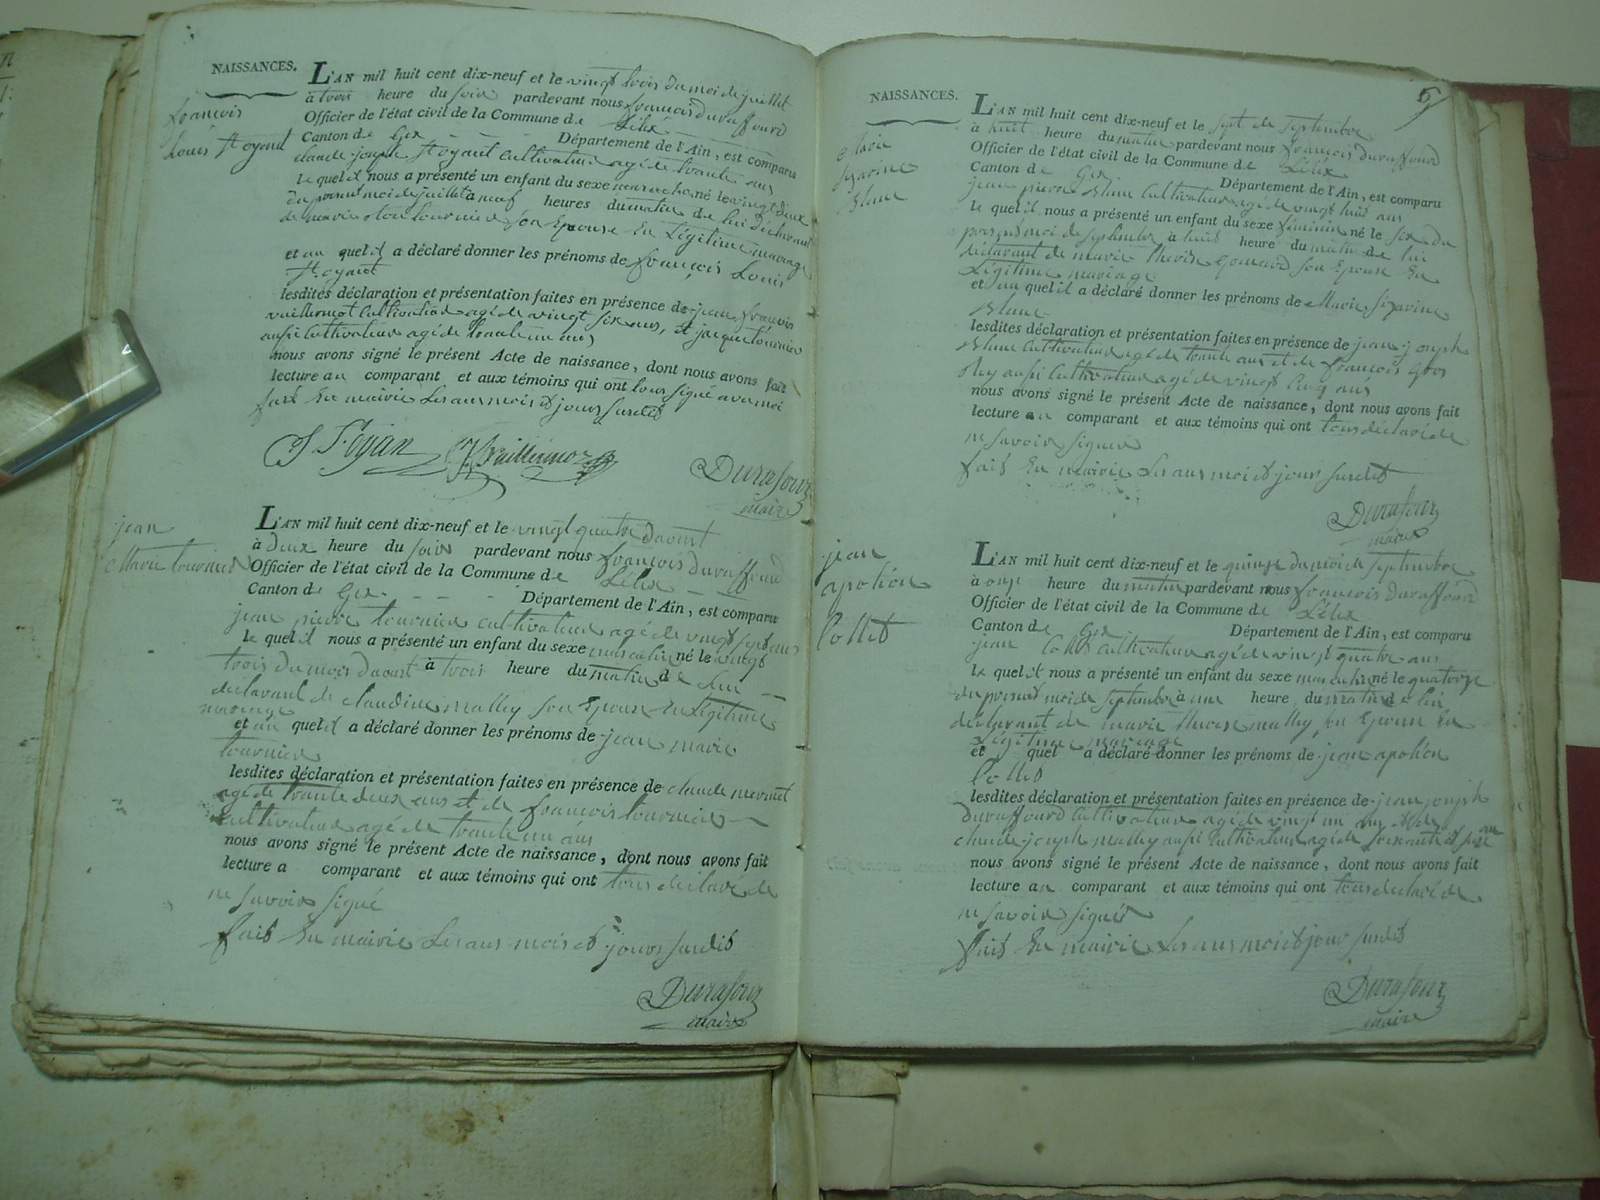 NAISSANCES.
françois
Louis St oyent
L'AN mil huit cent dix-neuf et le vingt trois du moi de juillet
à trois heure du soir pardevant nous françois duraffourd
Officier de l'état civil de la Commune de Lélex
Canton de Gex Département de l'Ain, est comparu
claude joseph St oyant cultivateur agé de trante ans
Le quel il nous a présenté un enfant du sexe né le vingt deux
du present moi de juillet a neuf heures du matin de lui declarant
de marie tournier son Epouse En Légitime mariage
et au quel il a déclaré donner les prénoms de françois Louis
St oyant
lesdites déclaration et présentation faites en présence de jean françois
vuillermot Cultivateur agé de vingt six ans, et jacque tournier
aussi Cultivateur agé de trante un ans
nous avons signé le présent Acte de naissance, dont nous avons fait
lecture au comparant et aux témoins qui ont tous signé avec moi
fait En mairie Les ans mois et jours susdit
Durafour
maire
jean
Marie tournier
L'AN mil huit cent dix-neuf et le vingt quatre daout
à deux heure du soir pardevant nous françois duraffourd
Officier de l'état civil de la Commune de Lélex
Canton de Gex Département de l'Ain, est comparu
jean pierre tournier cultivateur agé de vingt sept ans
Le quel il nous a présenté un enfant du sexe masculin né le vingt
trois du mois daout à trois heure du matin de lui
declarant de claudine malley son Epouse En Légitime
mariage
et au quel il a déclaré donner les prénoms de jean marie
tournier
lesdites déclaration et présentation faites en présence de claude mermet
agé de trante deux ans et de françois tournier
Cultivateur agé de trante un ans
nous avons signé le présent Acte de naissance, dont nous avons fait
lecture a comparant et aux témoins qui ont tous déclaré de
ne savoir signé
fait En mairie Les ans mois et jours susdit
Durafour
maire
NAISSANCES.
5
Marie
Blanc
L'AN mil huit cent dix-neuf et le sept de septembre
à huit heure du matin pardevant nous françois duraffourd
Officier de l'état civil de la Commune de Lélex
Canton de Gex Département de l'Ain, est comparu
jean pierre Blanc Cultivateur agé de vingt huit ans
Le quel il nous a présenté un enfant du sexe féminin né le six du
present moi de septembre à huit heure du matin de lui
declarant de marie son Epouse En
Légitime mariage
et au quel il a déclaré donner les prénoms de Marie
Blanc
lesdites déclaration et présentation faites en présence de jean joseph
Blanc Cultivateur agé de trante ans et de françois Gros
aussi Cultivateur agé de vingt Cinq ans
nous avons signé le présent Acte de naissance, dont nous avons fait
lecture au comparant et aux témoins qui ont tous déclaré de
ne savoir signer
fait En mairie Les ans moi et jours susdit
Durafour
maire
jean
apolién
Collet
L'AN mil huit cent dix-neuf et le quinze du moi de septembre
à onze heure du matin pardevant nous françois duraffourd
Officier de l'état civil de la Commune de Lélex
Canton de Gex Département de l'Ain, est comparu
jean Collet Cultivateur agé de vingt quatre ans
Le quel il nous a présenté un enfant du sexe masculin né le quatorze
du present moi de septembre à une heure du matin de lui
declarant de marie therese malley son Epouse En
Légitime mariage
et quel a déclaré donner les prénoms de jean apolién
Collet
lesdites déclaration et présentation faites en présence de jean joseph
Duraffourd Cultivateur agé de vingt un
claude joseph malley aussi Cultivateur agé de soixante et seize ans
nous avons signé le présent Acte de naissance, dont nous avons fait
lecture au comparant et aux témoins qui ont tous déclaré de
ne savoir signér
fait En mairie Les ans moi et jour susdit
Durafour
maire